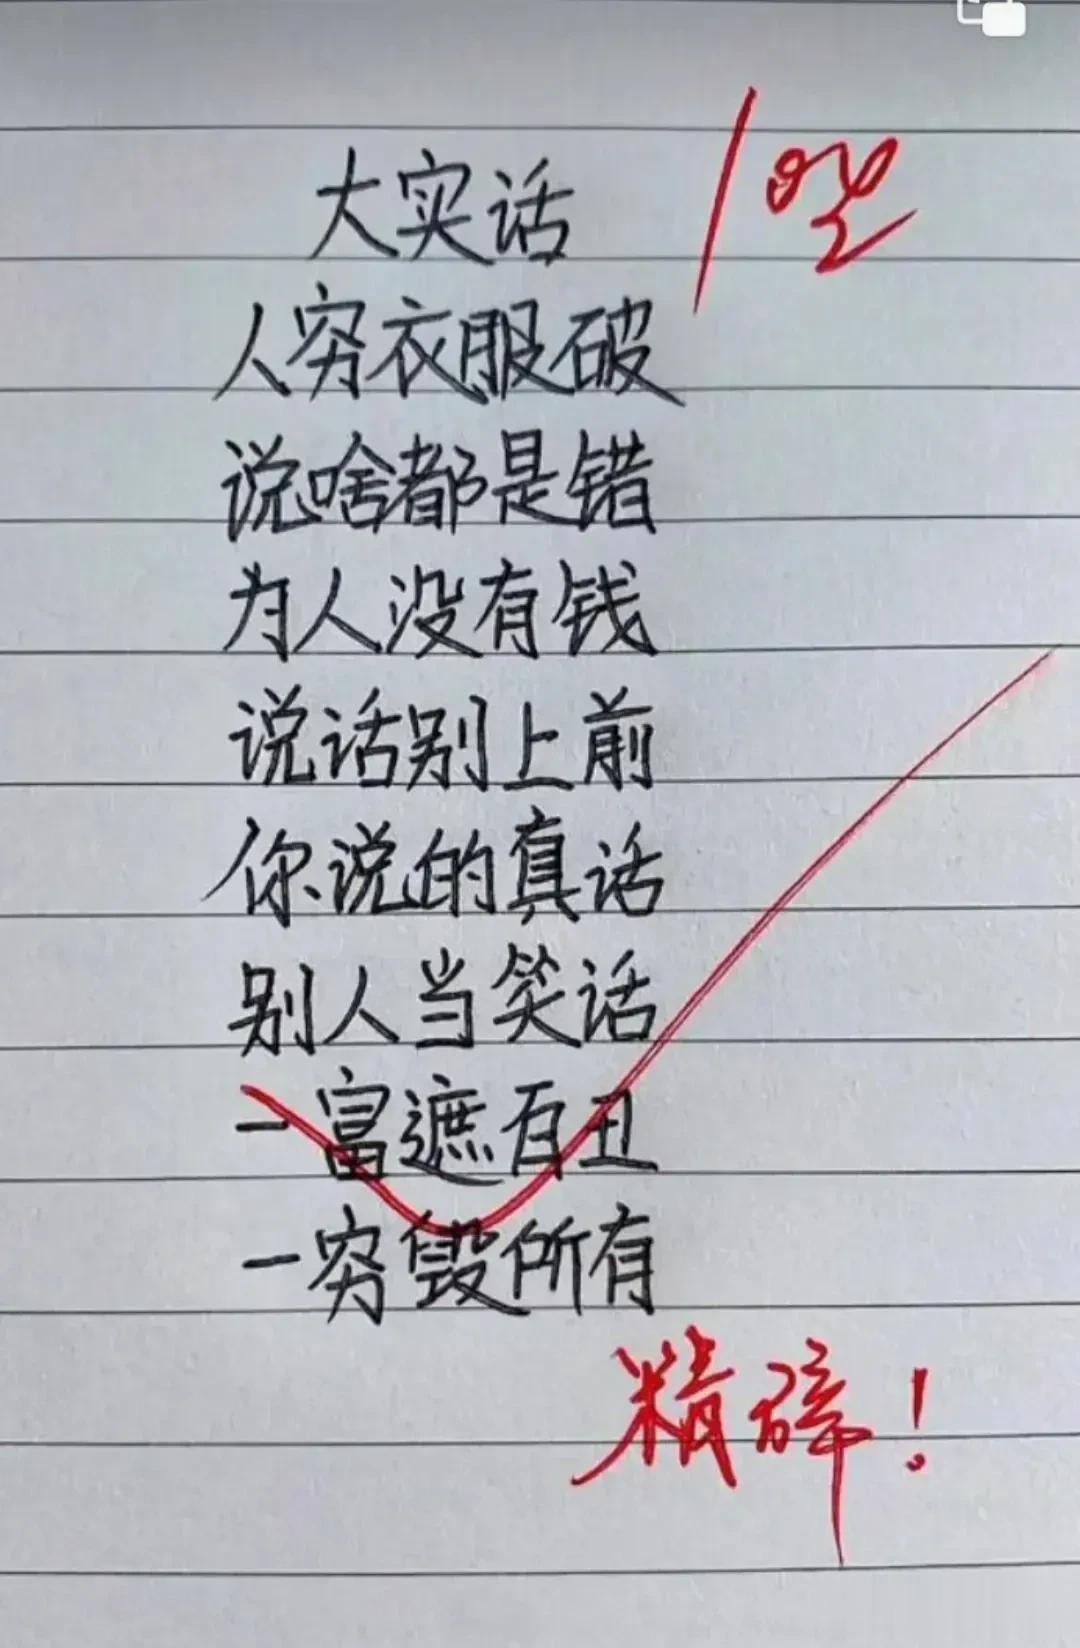 大实话
100
人穷衣服破
说啥都是错
为人没有钱
说话别上前
你说的真话
别人当笑话
一富遮百丑
一穷毁所有
精辟！